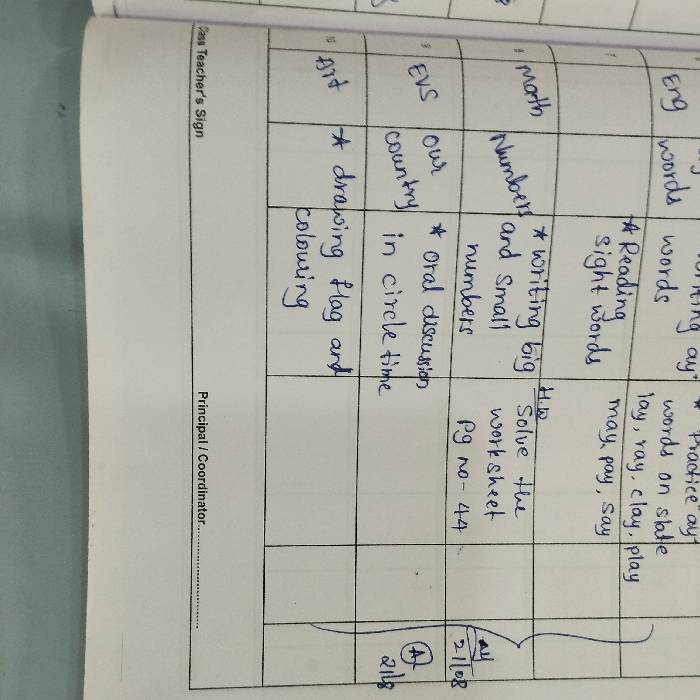 Eng
words
writing "ay"
words
* Reading
sight words
* Practice "ay"
words on slate
lay, ray, clay, play
may, pay, say
7
8
Math
Numbers
* writing big
and small
numbers
H.W
Solve the
worksheet
pg no - 44
21/08
9
EVS
our
country
* oral discussion
in circle time
A
21/8
10
Art
* drawing flag and
colouring
Class Teacher's Sign
Principal / Coordinator..............................